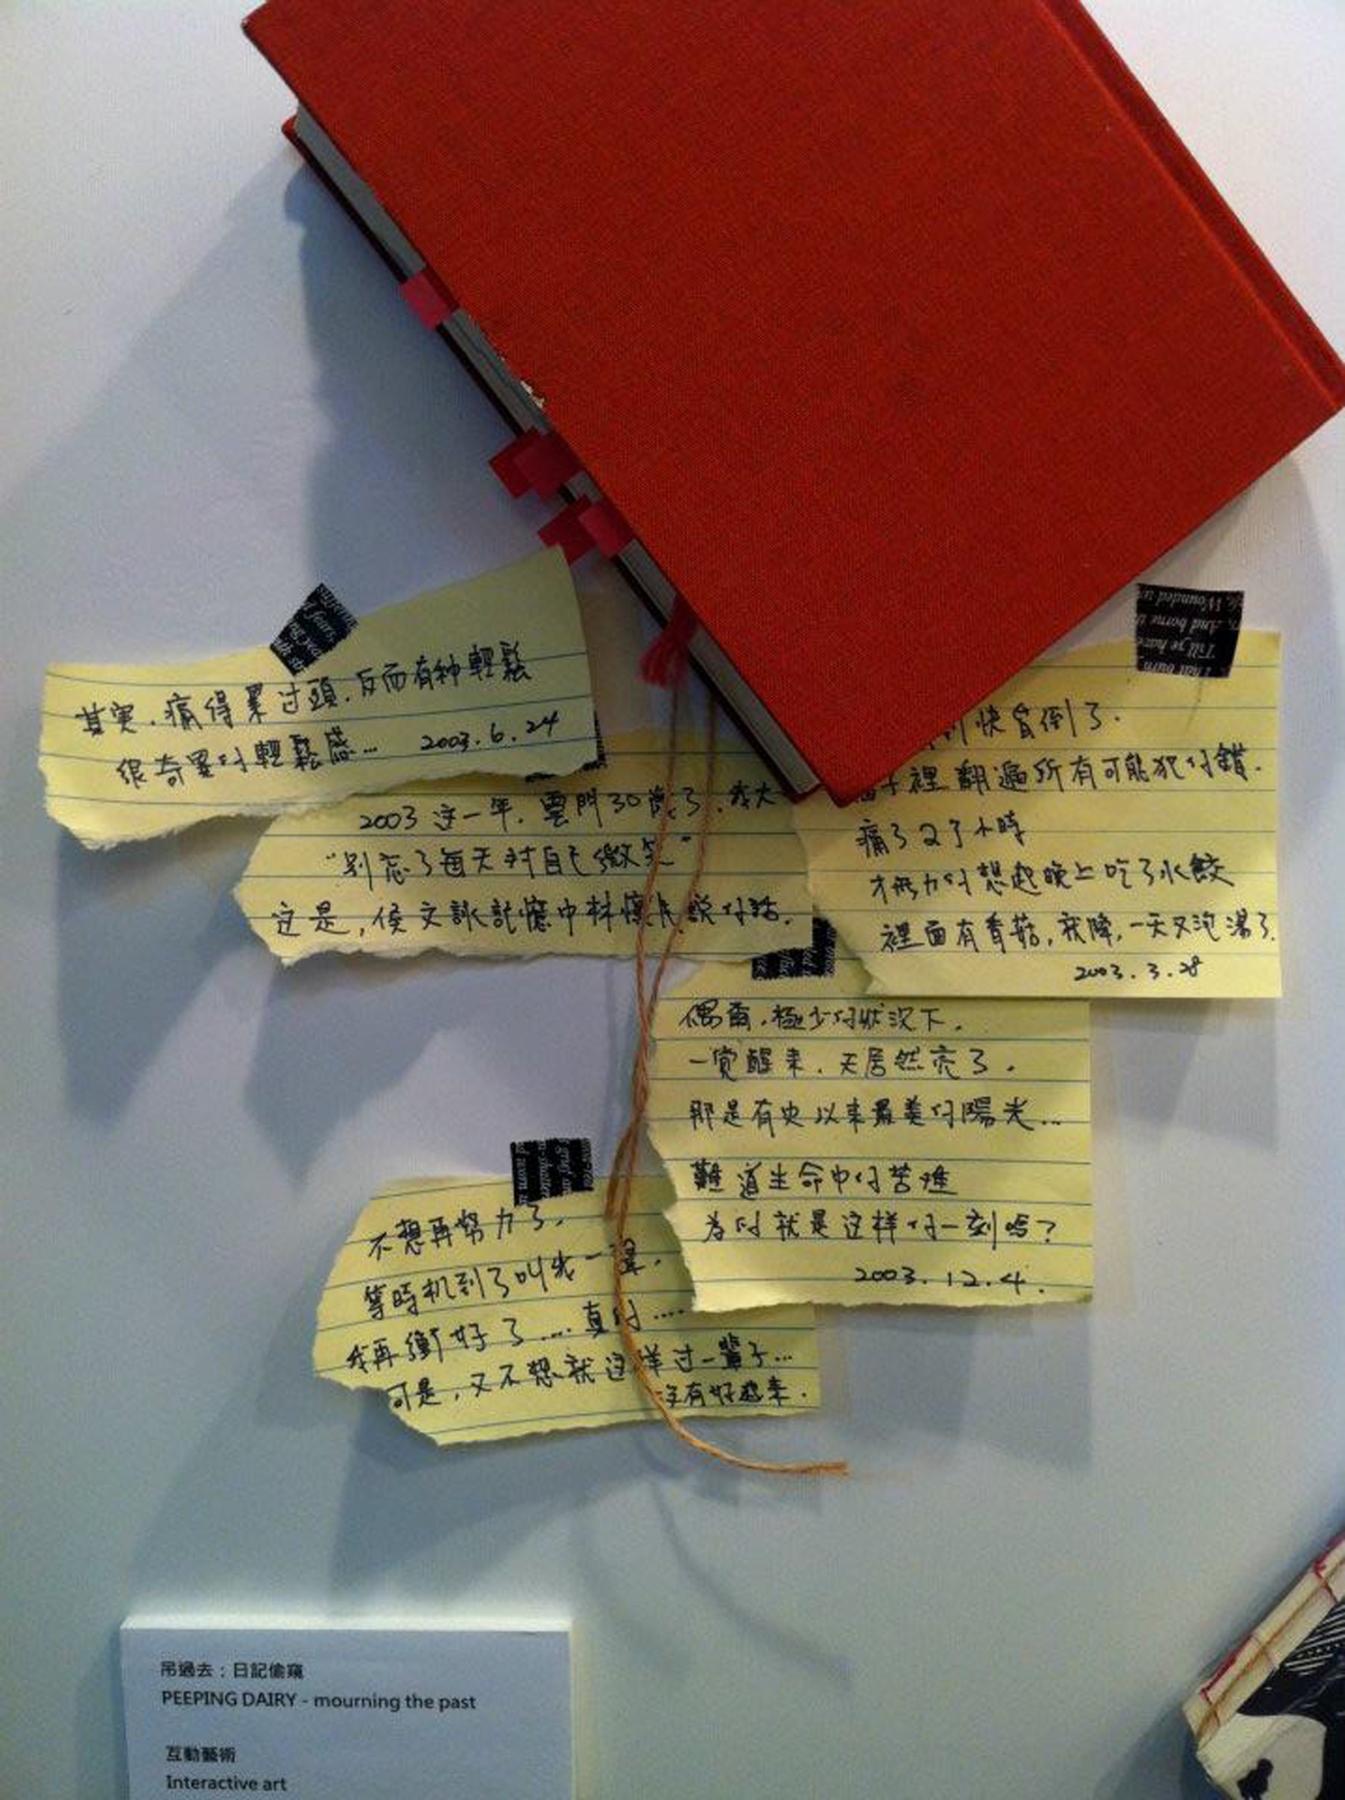 其実，痛得累过頭，反而有种輕鬆
很奇異的輕鬆感… 2003.6.24
2003 这一年，雲門30歲了，我大
"別忘了每天对自己微笑"
这是，侯文詠記憶中林懷民説的話．
快昏倒了．
子裡翻遍所有可能犯的錯．
痛了2了小時
才無力的想起晚上吃了水餃
裡面有香菇，我降，一天又泡湯了．
2003.3.28
偶爾，極少的狀況下，
一覚醒来，天居然亮了．
那是有史以来最美的陽光…
難道生命中的苦难
为的就是这样的一刻嗎？
2003.12.4．
不想再努力了，
等時机到了叫我一聲，
我再衝好了….真的….
可是，又不想就这样过一輩子…
没有好起来．
Wounded
And borne
Till ye have
吊過去：日記偷窺
PEEPING DAIRY - mourning the past
互動藝術
Interactive art